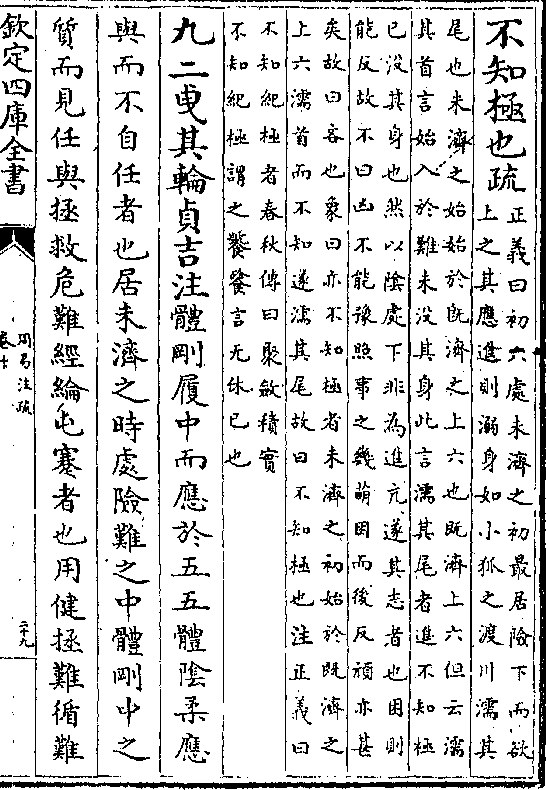 不知極也疏
正義曰初六處未濟之初最居險下而欲
上之其應進則溺身如小狐之渡川濡其
尾也未濟之始始於既濟之上六也既濟上六但云濡
其首言始入於難未没其身此言濡其尾者進不知極
已没其身也然以陰處下非為進亢遂其志者也困則
能反故不曰凶不能豫照事之幾萌困而後反頑亦甚
矣故曰吝也象曰亦不知極者未濟之初始於既濟之
上六濡首而不知遂濡其尾故曰不知極也注正義曰
不知紀極者春秋傳曰聚斂積實
不知紀極謂之饕餮言无休已也
九二曳其輪貞吉注體剛履中而應於五五體陰柔應
與而不自任者也居未濟之時處險難之中體剛中之
質而見任與拯救危難經綸屯蹇者也用健拯難循難
欽定四庫全書
周易注疏
卷十
二十九